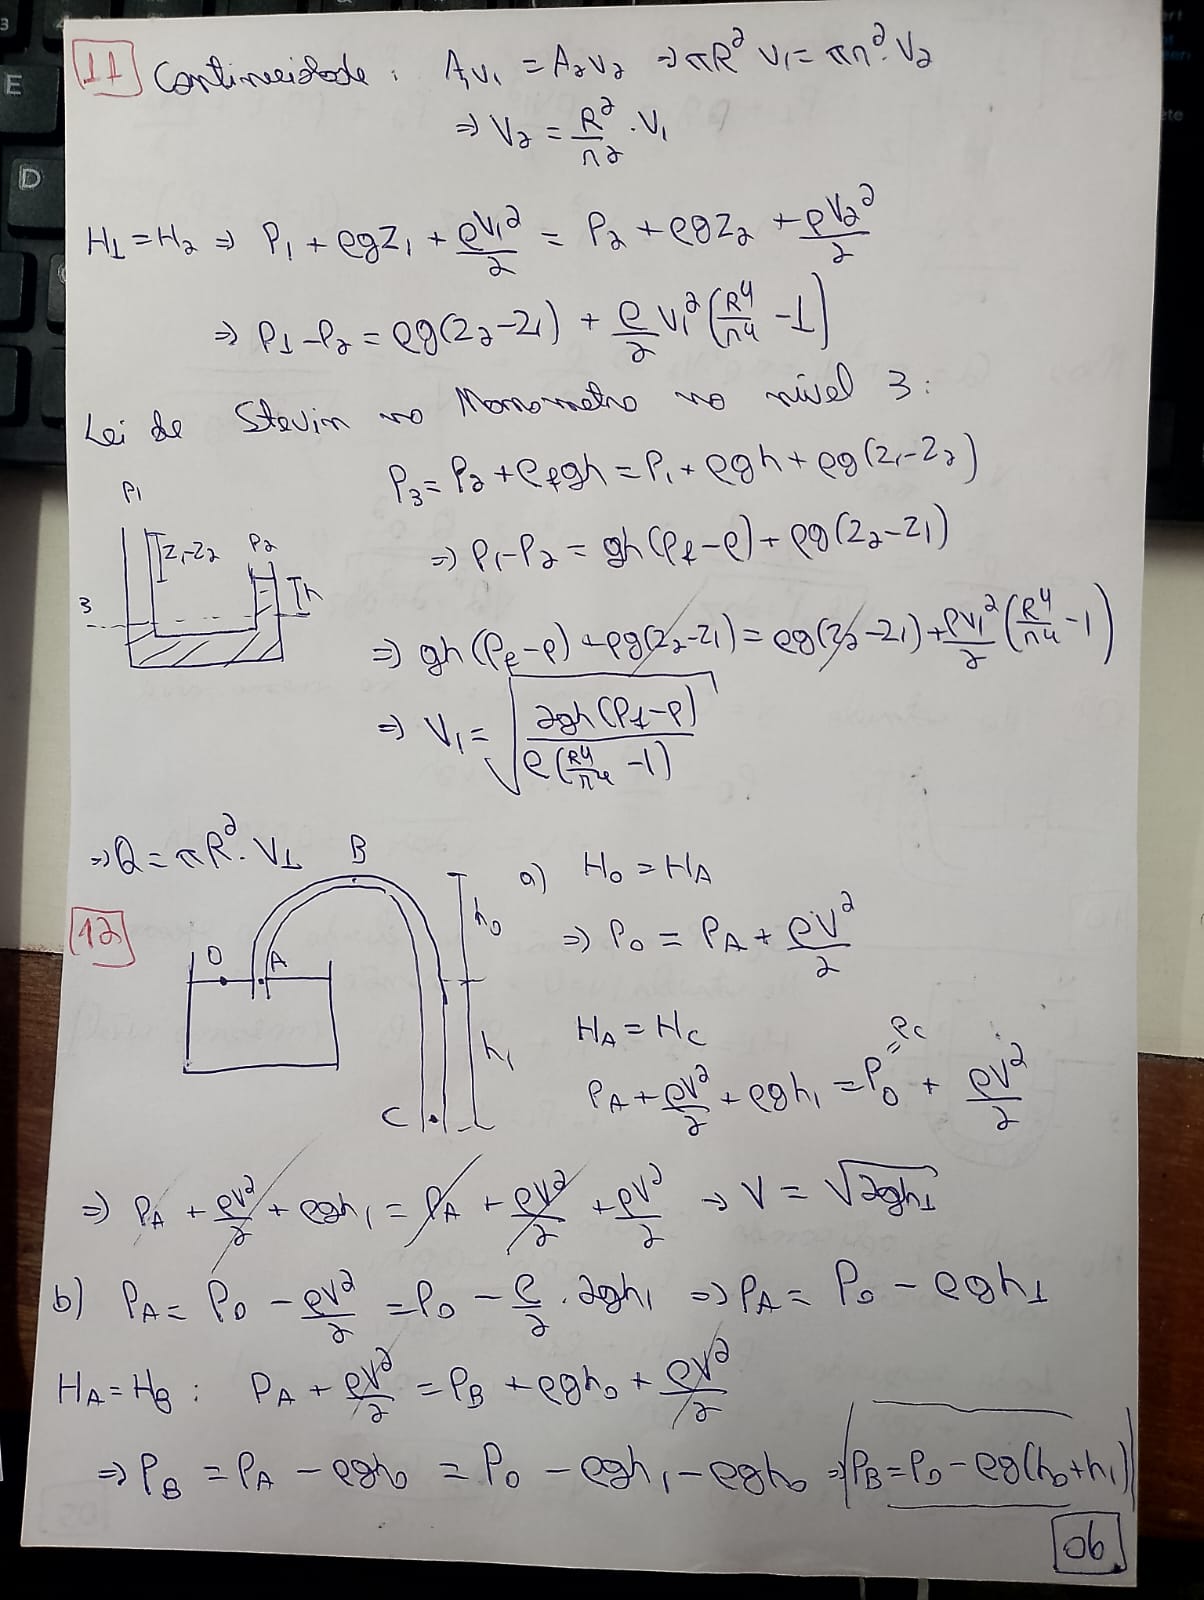 11 Continuidade: A₁V₁ = A₂V₂ ⇒ πR² V₁ = πr². V₂
⇒ V₂ = R²/r² . V₁
H₁ = H₂ ⇒ P₁ + ρgZ₁ + ρV₁²/2 = P₂ + ρgZ₂ + ρV₂²/2
⇒ P₁ - P₂ = ρg(Z₂-Z₁) + ρ/2 V₁² (R⁴/r⁴ - 1)
Lei de Stevin no Manometro no nível 3:
P₃ = P₂ + ρfgh = P₁ + ρgh + ρg(Z₁-Z₂)
P₁
Z₁-Z₂ P₂
⇒ P₁-P₂ = gh(ρf-ρ) + ρg(Z₂-Z₁)
3 h
⇒ gh(ρf-ρ) + ρg(Z₂-Z₁) = ρg(Z₂-Z₁) + ρV₁²/2 (R⁴/r⁴ - 1)
⇒ V₁ = √(2gh(ρf-ρ) / ρ(R⁴/r⁴ - 1))
⇒ Q = πR². V₁
12
B
O A
h₀
h₁
C
a) H₀ = HA
⇒ P₀ = PA + ρV²/2
HA = HC
PA + ρV²/2 + ρgh₁ = P₀ + ρV²/2
= PC
⇒ PA + ρV²/2 + ρgh₁ = PA + ρV²/2 + ρV²/2 ⇒ V = √2gh₁
b) PA = P₀ - ρV²/2 = P₀ - ρ/2 . 2gh₁ ⇒ PA = P₀ - ρgh₁
HA = HB : PA + ρV²/2 = PB + ρgh₀ + ρV²/2
⇒ PB = PA - ρgh₀ = P₀ - ρgh₁ - ρgh₀ ⇒ PB = P₀ - ρg(h₀+h₁)
06
E
D